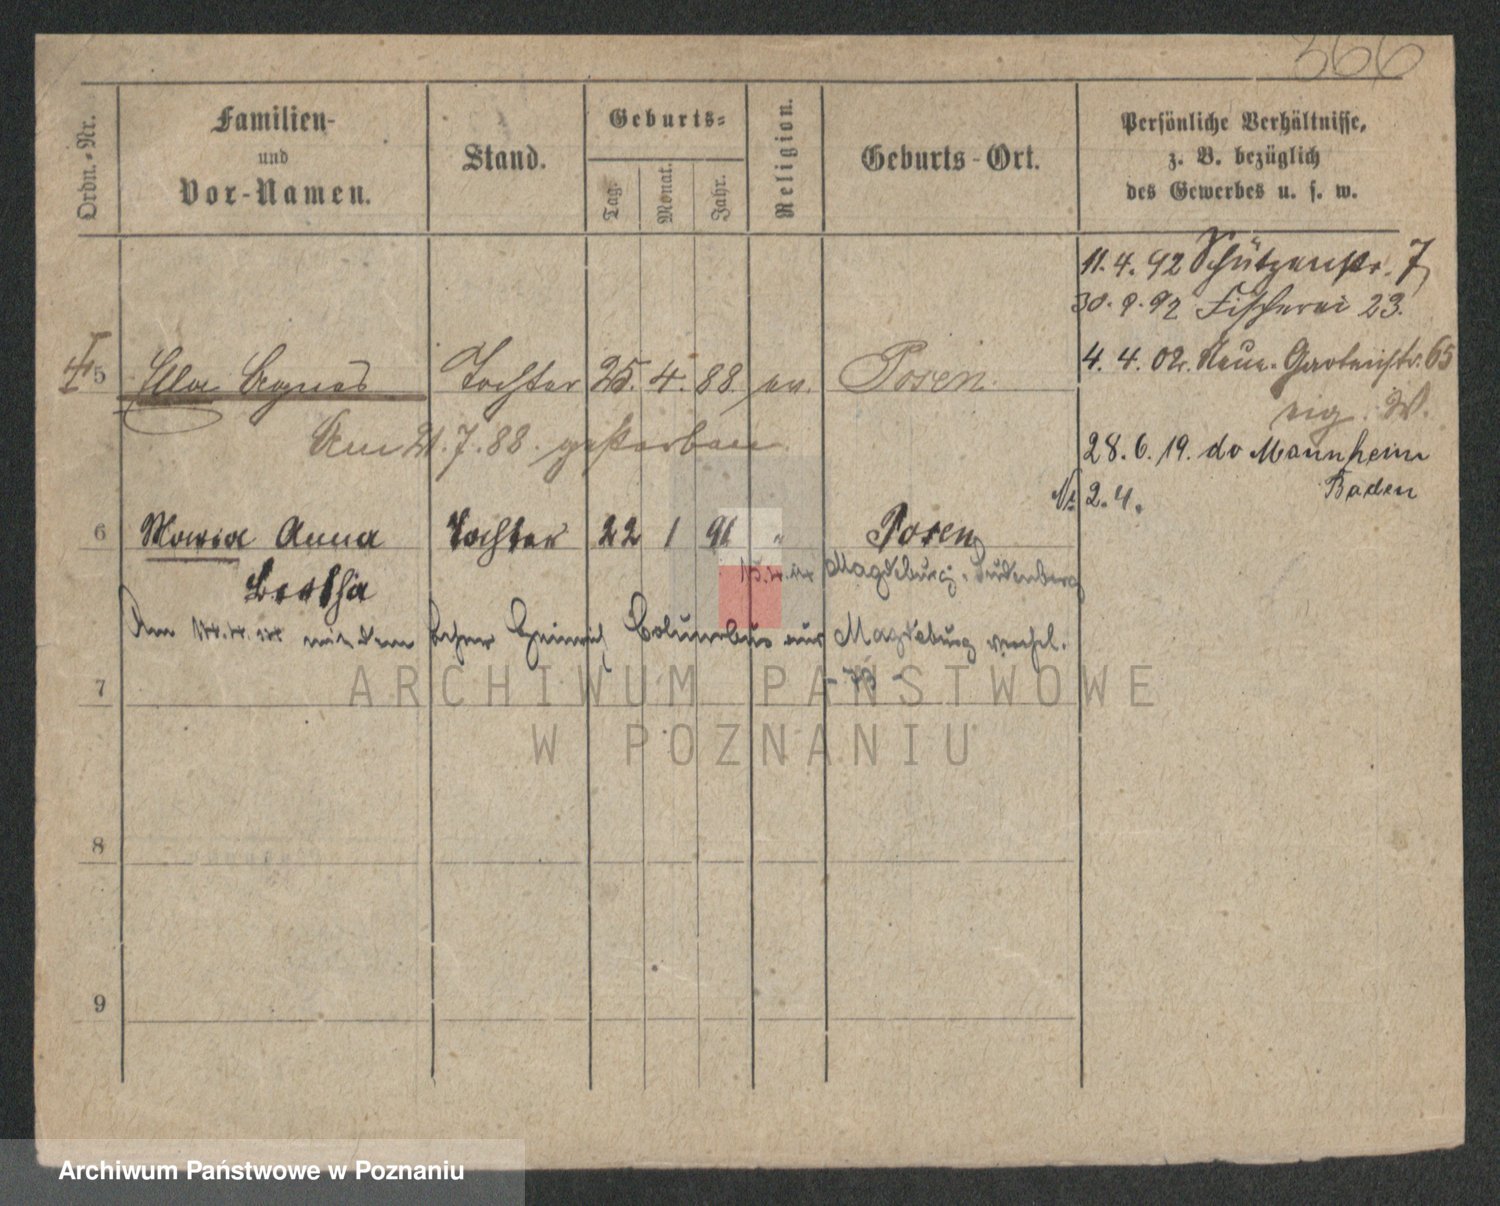 366
Ordn.-Nr.
Familien-
und
Vor-Namen.
Stand.
Geburts-
Tag.
Monat.
Jahr.
Religion.
Geburts-Ort.
Persönliche Verhältnisse,
z. B. bezüglich
des Gewerbes u. s. w.
11. 4. 92 Schützenstr. 7
30. 9. 92 Fischerei 23.
5 Ella Agnes Tochter 25. 4. 88. ev. Posen.
4. 4. 02. Neue Gartenstr. 65
eig. W.
Am 21. 7. 88. gestorben
28. 6. 19. do Mannheim
Baden
2. 4.
6 Maria Anna Tochter 22 1 91 " Posen
Bertha
Magdeburg-Sudenburg
Am mit dem Heinrich Columbus aus Magdeburg verehel.
7
ARCHIWUM PAŃSTWOWE
W POZNANIU
8
9
Archiwum Państwowe w Poznaniu